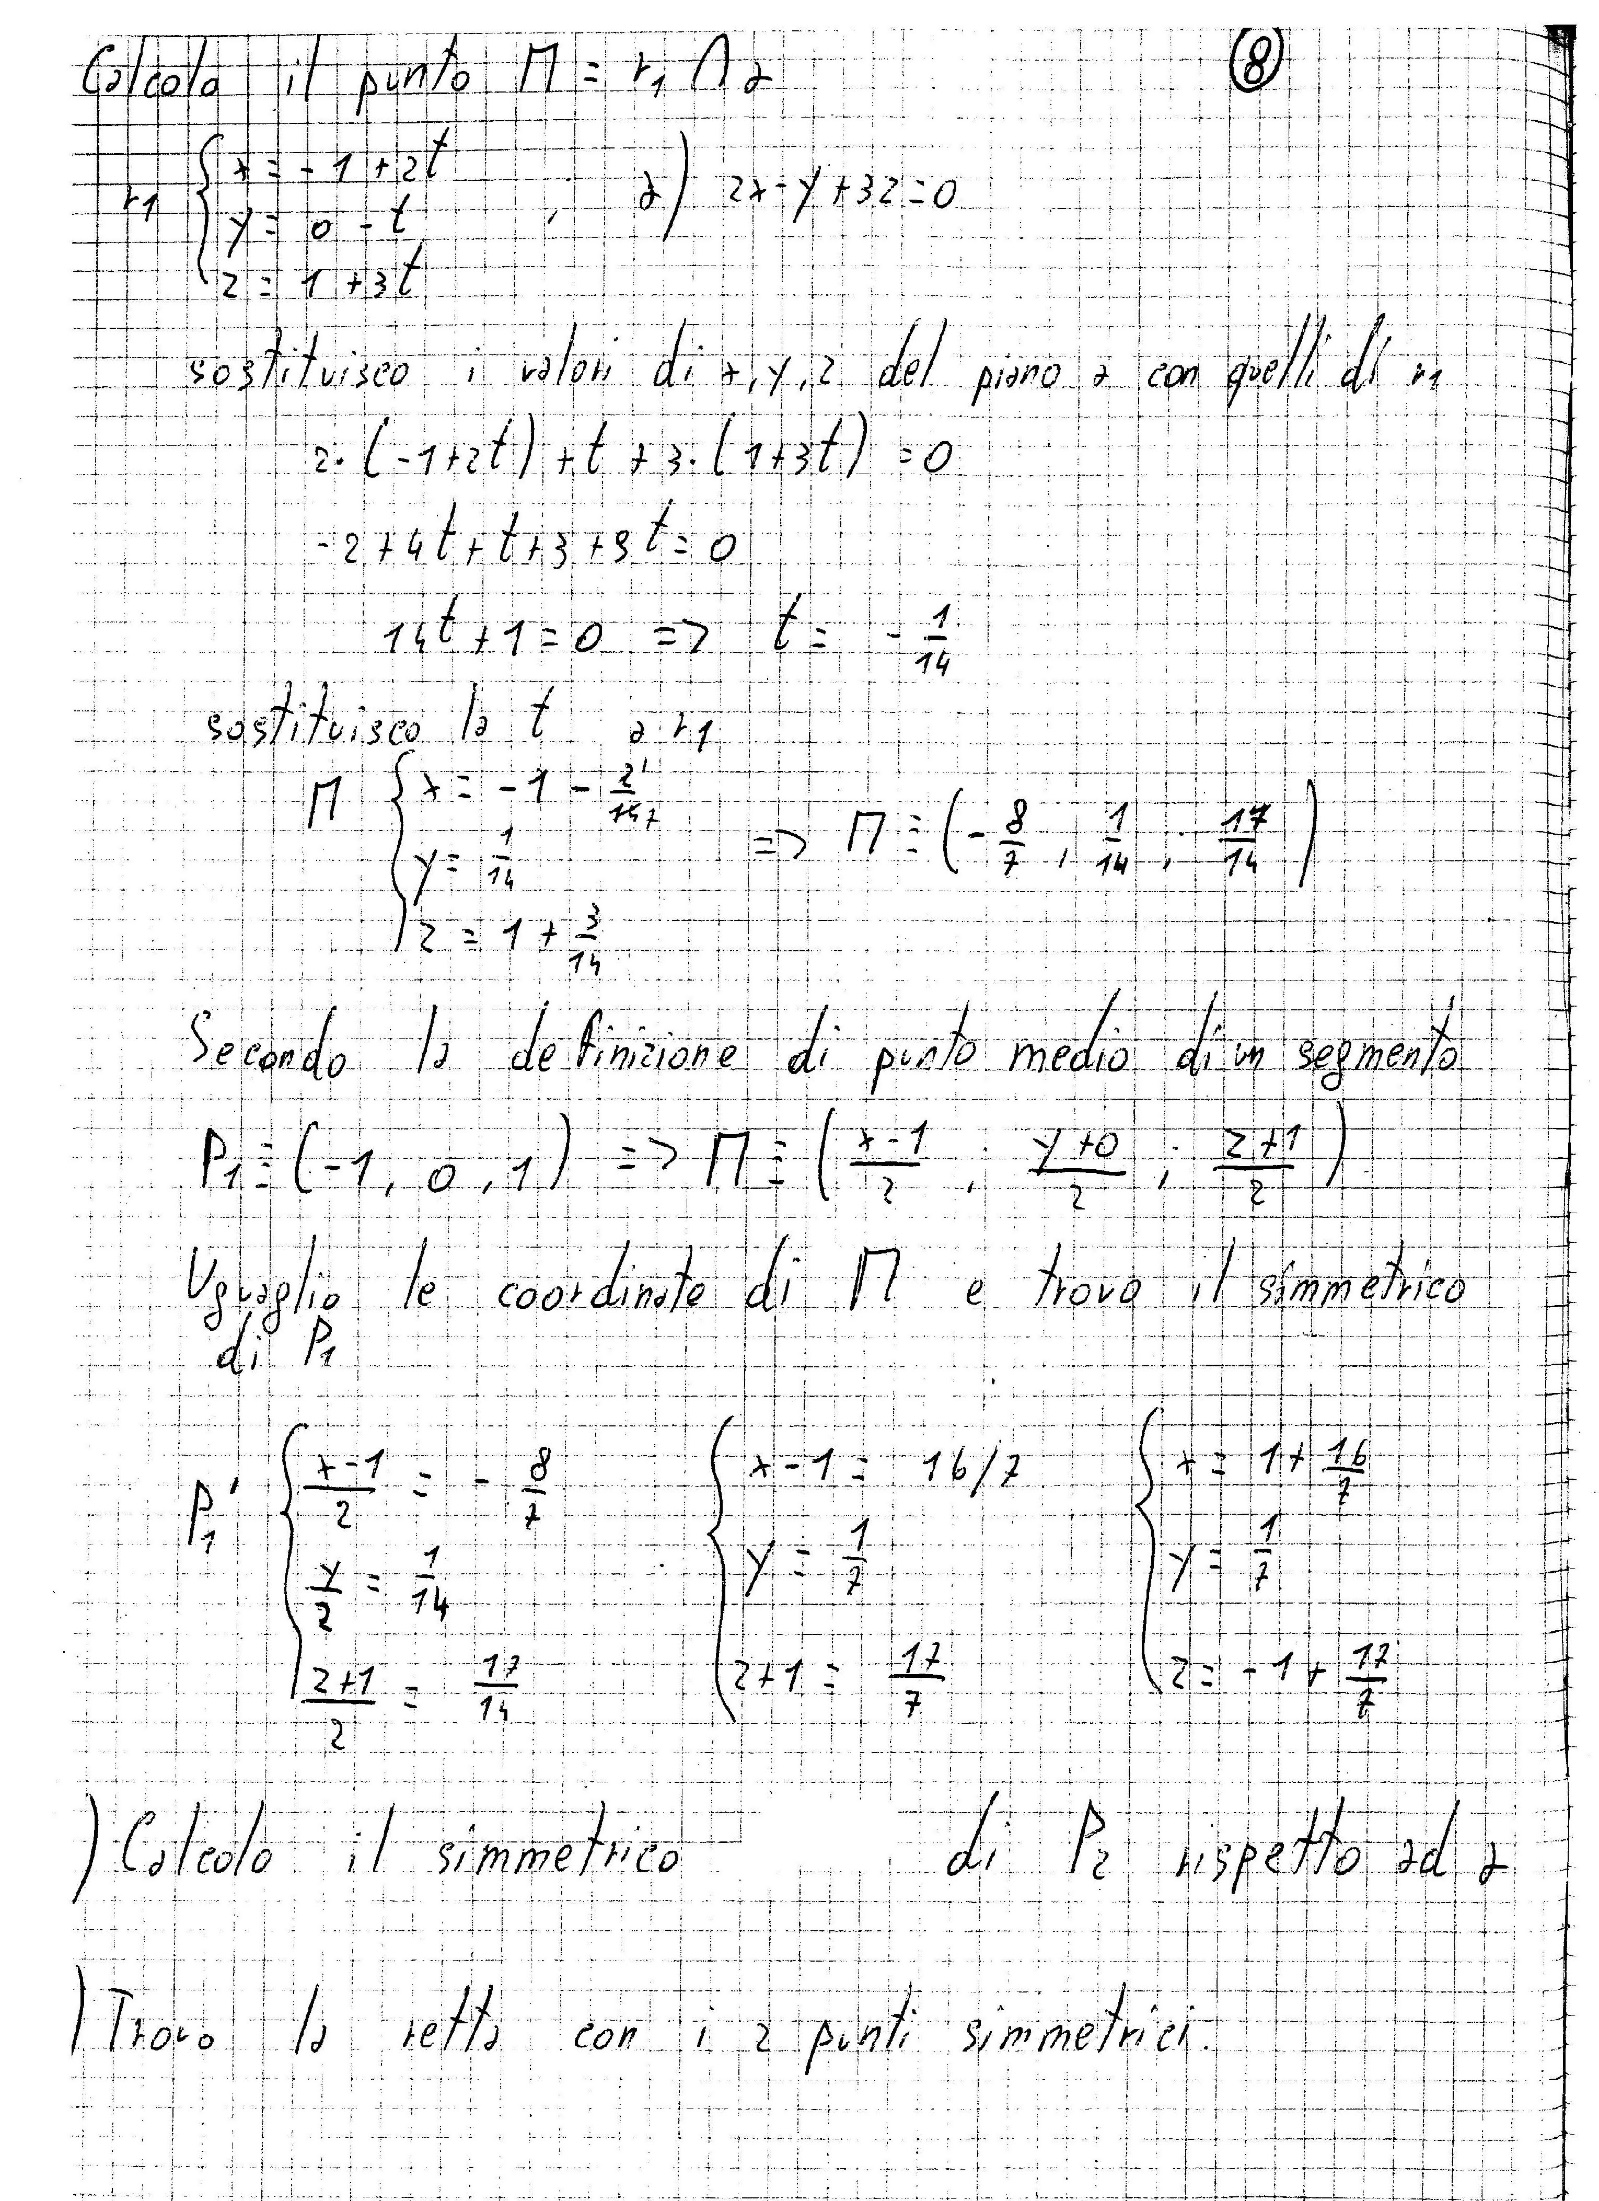 Calcola il punto M = r1 ∩ α
8
r1 { x = -1 + 2t
y = 0 - t , α) 2x - y + 3z = 0
z = 1 + 3t
sostituisco i valori di x, y, z del piano α con quelli di r1
2·(-1+2t) + t + 3·(1+3t) = 0
-2 + 4t + t + 3 + 9t = 0
14t + 1 = 0 => t = - 1/14
sostituisco la t a r1
M { x = -1 - 2/14 1/7
y = 1/14 => M ≡ (- 8/7 , 1/14 , 17/14)
z = 1 + 3/14
Secondo la definizione di punto medio di un segmento
P1 ≡ (-1, 0, 1) => M ≡ ( x-1/2 ; y+0/2 ; z+1/2 )
Uguaglio le coordinate di M e trovo il simmetrico
di P1
P1' { x-1/2 = - 8/7 { x-1 = 16/7 { x = 1 + 16/7
y/2 = 1/14 y = 1/7 y = 1/7
z+1/2 = 17/14 z+1 = 17/7 z = -1 + 17/7
) Calcolo il simmetrico di P2 rispetto ad α
) Trovo la retta con i 2 punti simmetrici.